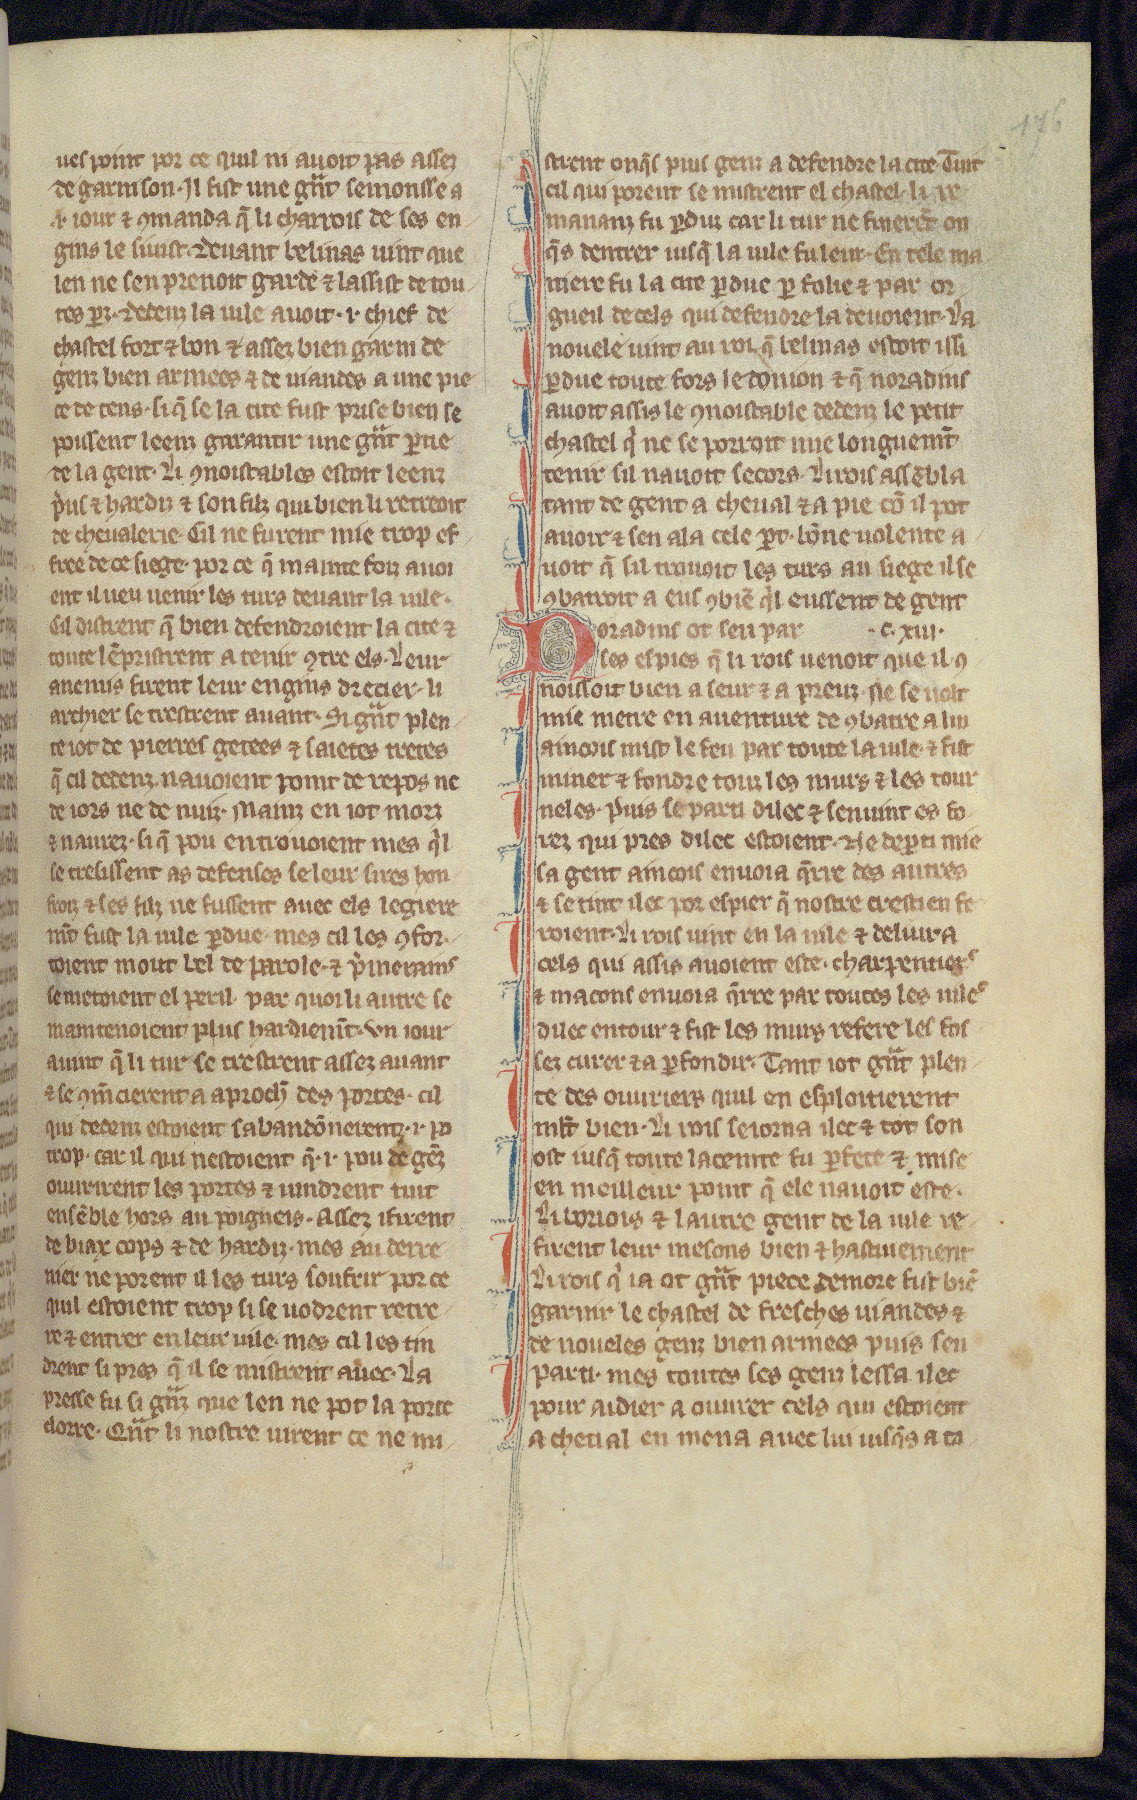 176
ues point por ce quil ni auoit pas assez
de garnison. Il fist une gñt semonsse a
.i. iour ⁊ ꝯmanda q̃ li charrois de ses en
gins le siuist. Deuant belinas uint que
len ne sen prenoit garde ⁊ lassist de tou
tes parz. Dedenz la uile auoit .i. chief de
chastel fort ⁊ bon ⁊ assez bien garni de
genz bien armees ⁊ de uiandes a une pie
ce de tens. si q̃ se la cite fust prise bien se
poissent leenz garantir une gñt ꝑtie
de la gent. Li ꝯnoistables estoit leenz
p̃us ⁊ hardiz ⁊ son filz qui bien li retreoit
de cheualerie. Cil ne furent mie trop ef
free de ce siege. por ce q̃ mainte foiz auoi
ent il ueu uenir les turs deuant la uile.
Cil distrent q̃ bien defendroient la cite ⁊
toute lẽpristrent a tenir ꝯtre els. Leur
anemis firent leur engins drecier. li
archier se trestrent auant. Si gñt plen
te iot de pierres getees ⁊ saietes tretes
q̃ cil dedenz nauoient point de repos ne
de iors ne de nuiz. Mainz en iot morz
⁊ naurez. si q̃ pou en trouoient mes q̃l
se tresissent as defenses se leur sires hon
froiz ⁊ ses filz ne fussent auec els legiere
mñt fust la uile ꝑdue. mes cil les ꝯfor
toient mout bel de parole. ⁊ p̃merains
se metoient el peril. par quoi li autre se
maintenoient plus hardiemñt. Vn iour
auint q̃ li tur se trestrent assez auant
⁊ se ꝯmẽcierent a aprochẽ des portes. cil
qui dedenz estoient sabandõnerent .i. po
trop. car il qui nestoient q̃ .i. pou de gẽz
ouurirent les portes ⁊ uindrent tuit
ensẽble hors au poigneis. Assez ifirent
de biax cops ⁊ de hardiz. mes au derre
nier ne porent il les turs soufrir por ce
quil estoient trop si se uodrent retre
re ⁊ entrer en leur uile. mes cil les tin
drent si pres q̃ il se mistrent auec. La
presse fu si gñz que len ne pot la porte
clorre. Qñt li nostre uirent ce ne mi
strent onq̃s puis genz a defendre la cite. Tuit
cil qui porent se mistrent el chastel. li re
mananz fu ꝑduz car li tur ne finerẽt on
q̃s dentrer iusq̃ la uile fu leur. En tele ma
niere fu la cite ꝑdue ꝑ folie ⁊ par or
gueil de cels qui defendre la deuoient. La
nouele uint au roi q̃ belinas estoit issi
ꝑdue toute fors le donion ⁊ q̃ noradins
auoit assis le ꝯnoistable dedenz le petit
chastel q̃ ne se porroit mie longuemñt
tenir sil nauoit secors. Li rois assẽbla
tant de gent a cheual ⁊ a pie cõ il pot
auoir ⁊ sen ala cele ꝑt. bõne uolente a
uoit q̃ sil trouoit les turs au siege il se
ꝯbatroit a eus ꝯbiẽ q̃l eussent de gent
Noradins ot seu par .c. xiii.
ses espies q̃ li rois uenoit que il ꝯ
noissoit bien a seur ⁊ a preuz. Ne se uolt
mie metre en auenture de ꝯbatre a lui
aincois mist le feu par toute la uile. ⁊ fist
miner ⁊ fondre touz les murs ⁊ les tour
neles. puis se parti dilec ⁊ sen uint es fo
rez qui pres dilec estoient. Ne deꝑti mie
sa gent aincois enuoia q̃rre des autres
⁊ se tint ilec por espier q̃ nostre crestien fe
roient. Li rois uint en la uile ⁊ deliura
cels qui assis auoient este. charpentiers
⁊ macons enuoia q̃rre par toutes les uiles
dilec entour ⁊ fist les murs refere les fos
sez curer ⁊ a ꝑfondir. Tant iot gñt plen
te des ouuriers quil en esploitierent
mlt bien. Li rois seiorna ilec ⁊ tot son
ost iusq̃ toute la ceinte fu ꝑfete ⁊ mise
en meilleur point q̃ ele nauoit este.
Li boriois ⁊ lautre gent de la uile re
firent leur mesons bien ⁊ hastiuement
Li rois q̃ ia ot gñt piece demore fist biẽ
garnir le chastel de fresches uiandes ⁊
de noueles genz bien armees puis sen
parti. mes toutes ses genz lessa ilec
pour aidier a ouurer cels qui estoient
a cheual en mena auec lui iusq̃s a ta